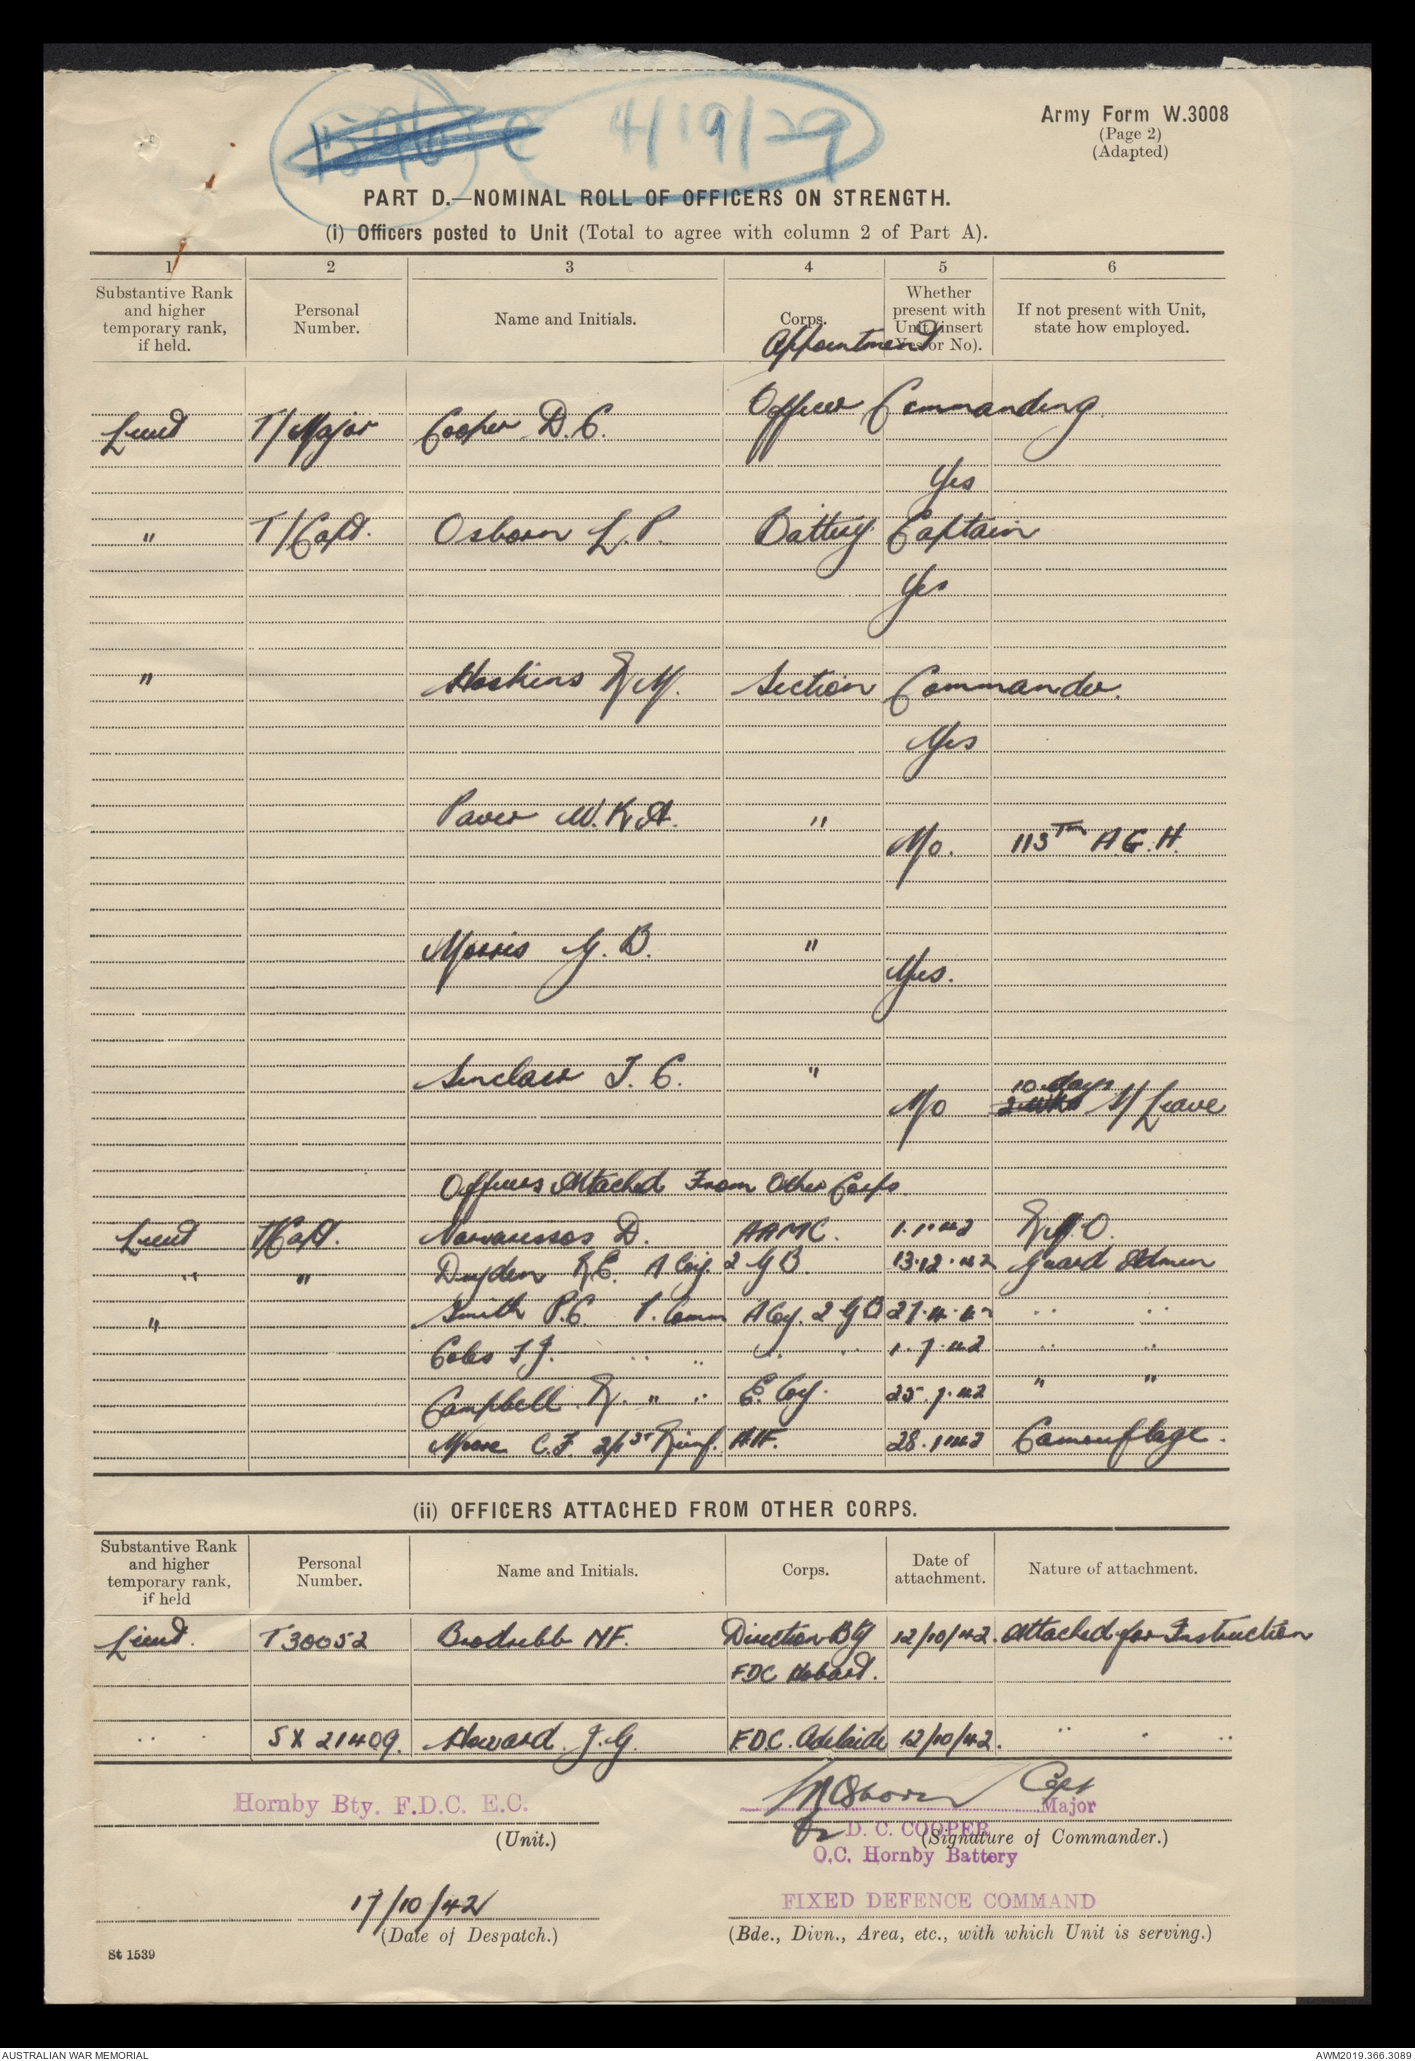 4/19/29
Army Form W.3008
(Page 2)
(Adapted)
PART D.—NOMINAL ROLL OF OFFICERS ON STRENGTH.
(i) Officers posted to Unit (Total to agree with column 2 of Part A).
1 2 3 4 5 6
Substantive Rank and higher temporary rank, if held. Personal Number. Name and Initials. Corps. Whether present with Unit (insert Yes or No). If not present with Unit, state how employed.
Appointment
Lieut T/Major Cooper D.C. Officer Commanding
Yes
" T/Capt. Osborn L.P. Battery Captain
Yes
" Hoskins R.M. Section Commander.
Yes
Paver W.K.A. "
No. 113th A.G.H.
Morris G.B. "
Yes.
Sinclair J.C. "
10 days
No 2 wks S/Leave
Officers Attached From Other Corps
Lieut T/Capt. D. AAMC. 1.1.42 R.M.O.
" " Dryden R.C. A Coy 2 G B. 13.12.42 Guard Admin
" Smith P.C. P. Comm A Coy. 2 G B 27.4.42 " "
Coles T.J. " " " " 1.7.42 " "
Campbell R. " " E. Coy. 25.7.42 " "
Moore C.F. 2/1st Reinf. AIF. 28.1.42 Camouflage.
(ii) OFFICERS ATTACHED FROM OTHER CORPS.
Substantive Rank and higher temporary rank, if held Personal Number. Name and Initials. Corps. Date of attachment. Nature of attachment.
Lieut. T30052 Brodribb NF. Direction Bty 12/10/42. Attached for Instruction
F.D.C Hobart.
" " SX 21409. Howard J.G. F.D.C. Adelaide 12/10/42. " " "
Hornby Bty. F.D.C. E.C.
(Unit.)
LPOsborn Capt
Major
for D. C. COOPER
(Signature of Commander.)
O.C. Hornby Battery
17/10/42
(Date of Despatch.)
FIXED DEFENCE COMMAND
(Bde., Divn., Area, etc., with which Unit is serving.)
St 1539
AUSTRALIAN WAR MEMORIAL
AWM2019.366.3089